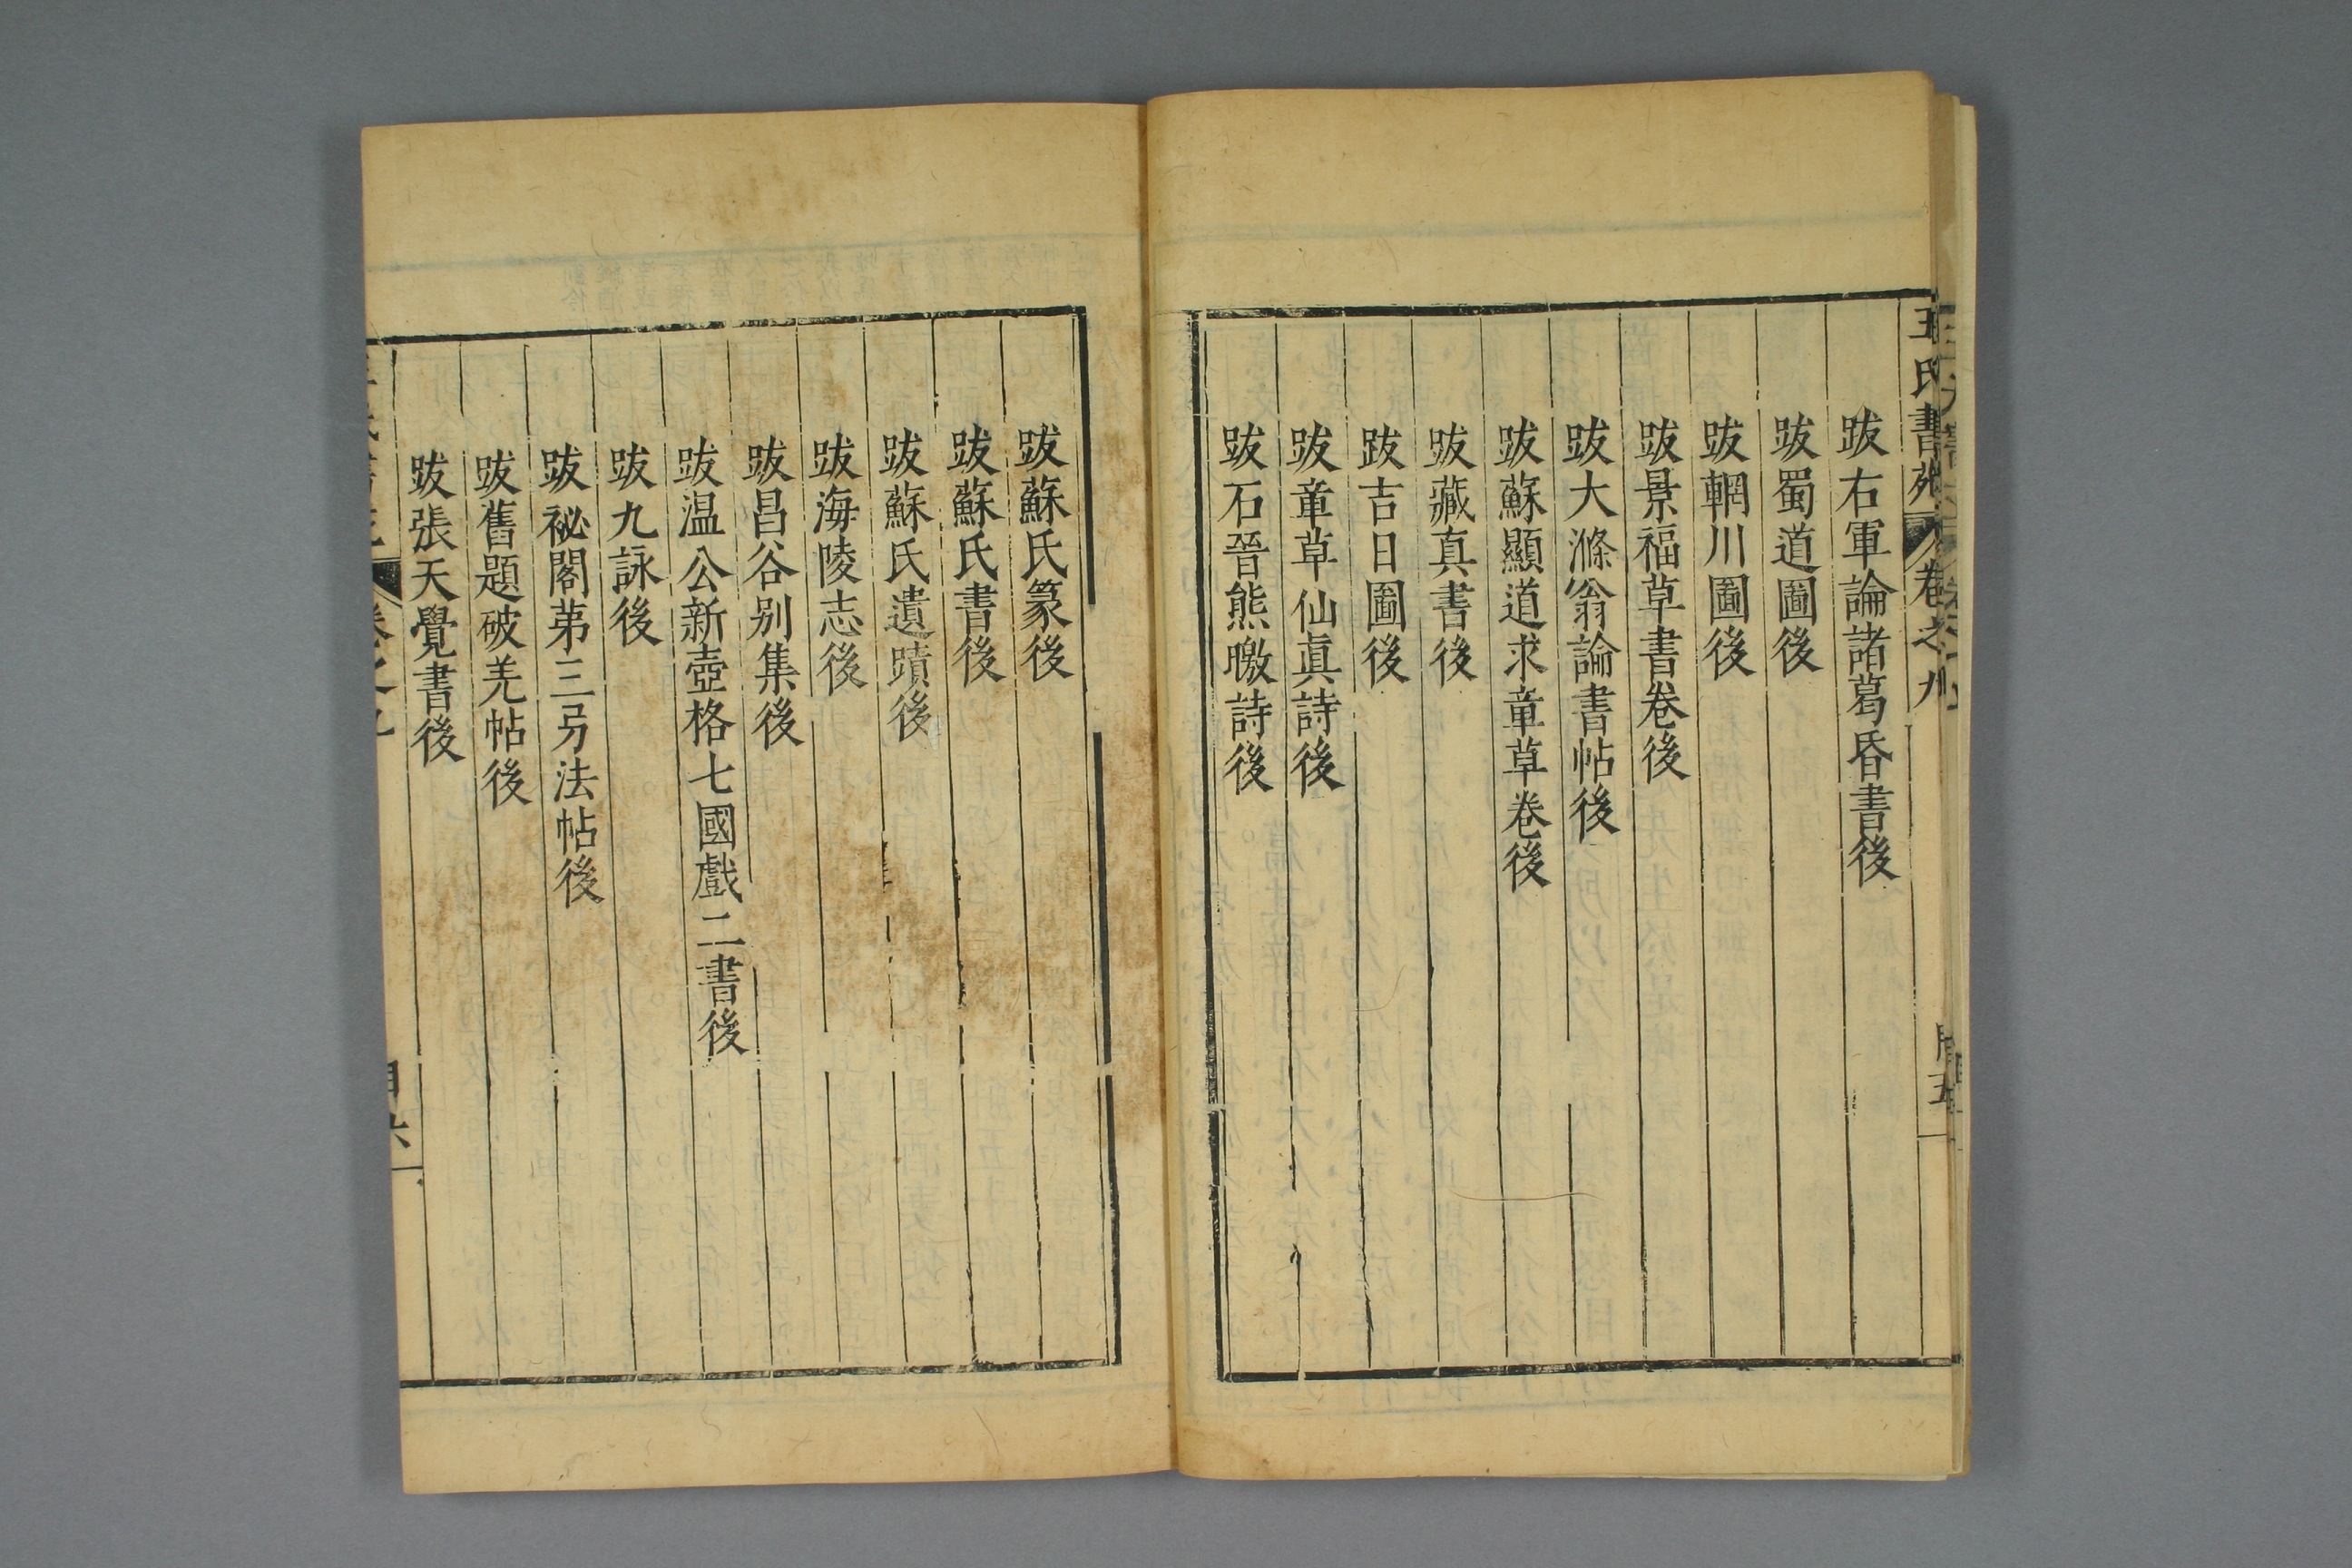 王氏書苑 卷之九
跋右軍論諸葛昏書後
跋蜀道圖後
跋輞川圖後
跋景福草書卷後
跋大滌翁論書帖後
跋蘇顯道求章草卷後
跋藏真書後
跋吉日圖後
跋章草仙眞詩後
跋石晉熊皦詩後
跋蘇氏篆後
跋蘇氏書後
跋蘇氏遺蹟後
跋海陵志後
跋昌谷别集後
跋温公新壺格七國戲二書後
跋九詠後
跋祕閣苐三弓法帖後
跋舊題破羌帖後
跋張天覺書後